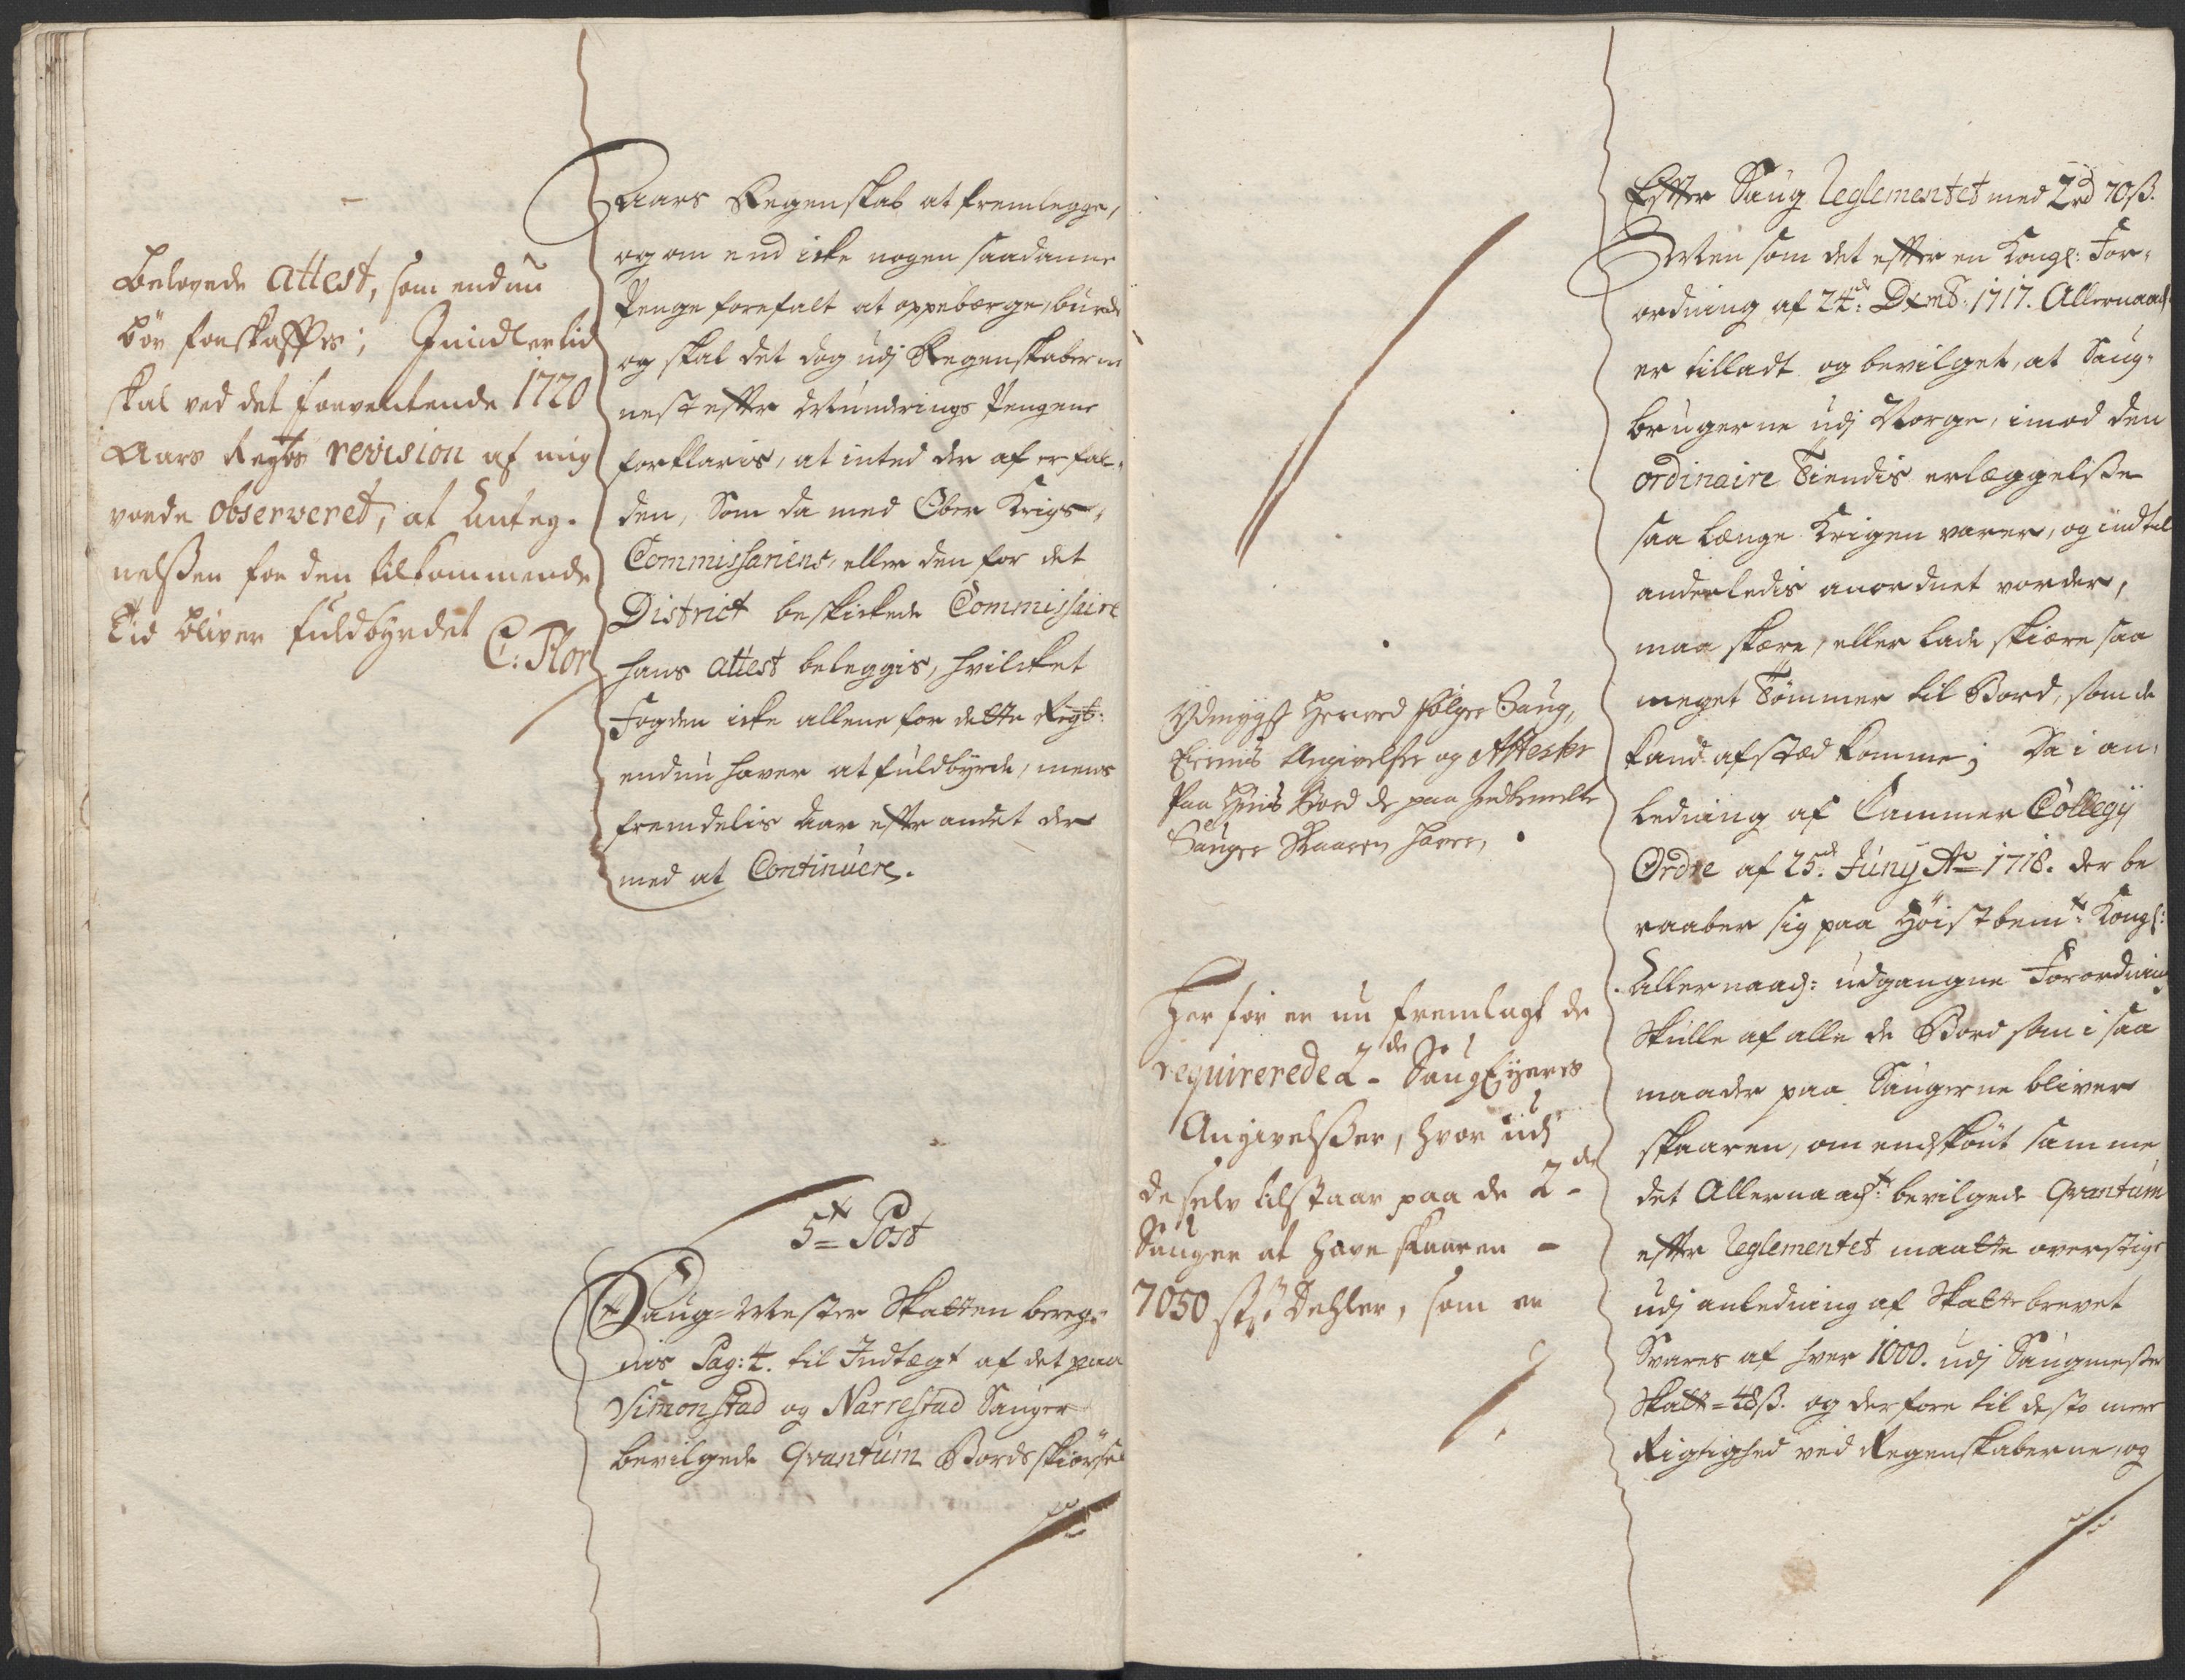 belovede attest, som endnu
bör forskaffes; Jmidlertid
skal ved det forventende 1720
Aars Regbs revision af mig
vorde observeret, at Anteg-
nelßen for den tilkommende
Tid bliver fuldbyrdet
C: Flor
Aars Regenskab at fremlegge,
og om end icke nogen saadanne
Penge forefalt at oppebærge, burde
og skal det dog udj Regenskaberne
nest efter Munderings Pengene
forklaris, at inted der af er fal-
den, Som da med Ober Krigs-
Commissariens, eller den for det
District beskickede Commissaire
hans attest beleggis, hvilcket
Fogden icke allene for dette Regb:
endnu haver at fuldbyrde, mens
fremdelis Aar efter andet der
med at Continuere.
5te Post
Saug-Mester Skatten bereg-
nis Pag: 4. til Indtægt af det paa
Simonstad og Narrestad Sauger
bevilgede Qvantum Bordskiörsel
Ydmygst Herved fölger Saug,
Eiernis Angivelser og Attester
Paa Huis Bord de paa Indbemelte
Sauger Skaaren haver,
Herfor er nu fremlagt de
requirerede 2de SaugEyeres
Angivelßer, hvor udj
de selv tilstaar paa de 2de
Sauger at have skaaren -
7050 st: Dehler, som er
Efter Saug Reglementet med 2rd 70ß.
Men som det efter en Kongl: For-
ordning af 24de Dxmb: 1717. Allernaad:
er tilladt og bevilget, at Saug-
brugerne udj Norge, imod den
ordinaire Tiendis erlæggelße
saa længe Krigen varer, og indtil
anderledis anordnet vorder,
maa skære, eller lade skiære saa
meget Tömmer til Bord, som de
kand afsted komme; Da i an-
ledning af Cammer Collegij
Ordre af 25de Junij Ao 1718. der be
raaber sig paa Höistbemte Kongl:
Allernaad: udgangne Forordning
Skulle af alle de Bord som i saa
maader paa Saugerne bliver
skaaren, om endskönt samme
det Allernaadt: bevilgede Qvantum
efter Reglementet maatte overstige
udj anledning af Skattebrevet
Svares af hver 1000. udj Saugmester
Skatt = 48ß. og derfore til desto mere
Rigtighed ved Regenskaberne, og